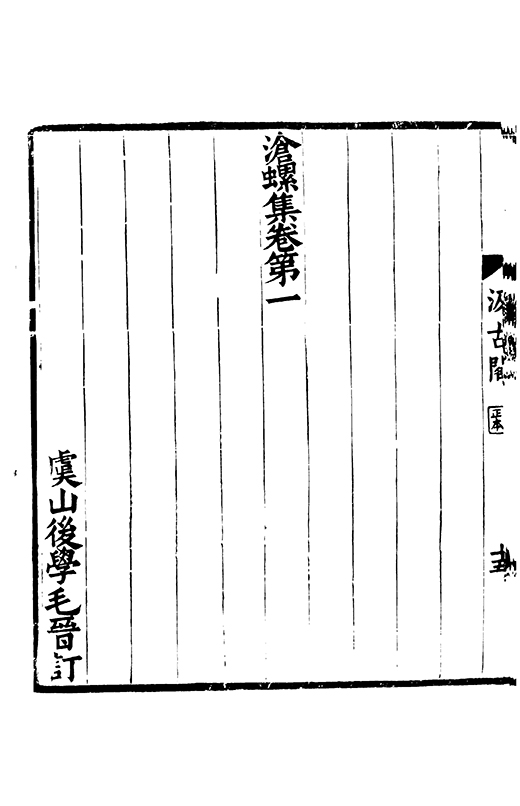 汲古閣
正本
滄螺集卷第一
虞山後學毛晉訂